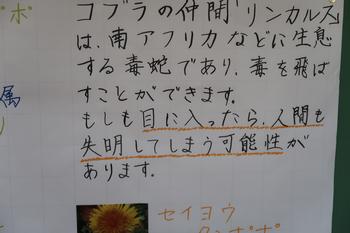 ポポ
コブラの仲間「リンカルス」
は、南アフリカなどに生息
する毒蛇であり、毒を飛ば
すことができます。
属
もしも目に入ったら、人間も
失明してしまう可能性が
あります。
セイヨウ
タンポポ